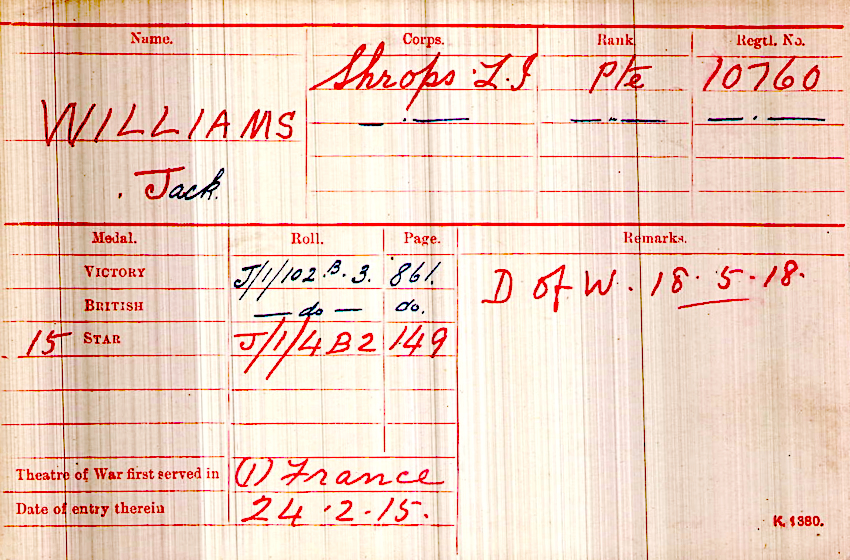 Name. Corps. Rank Regtl. No.
WILLIAMS Shrops. L.I Pte 10760
— . — — " — — . —
. Jack.
Medal. Roll. Page. Remarks.
VICTORY J/1/102 B. 3. 861. D of W. 18. 5. 18.
BRITISH — do — do.
15 STAR J/1/4 B2 149
Theatre of War first served in (1) France
Date of entry therein 24.2.15.
K. 1380.